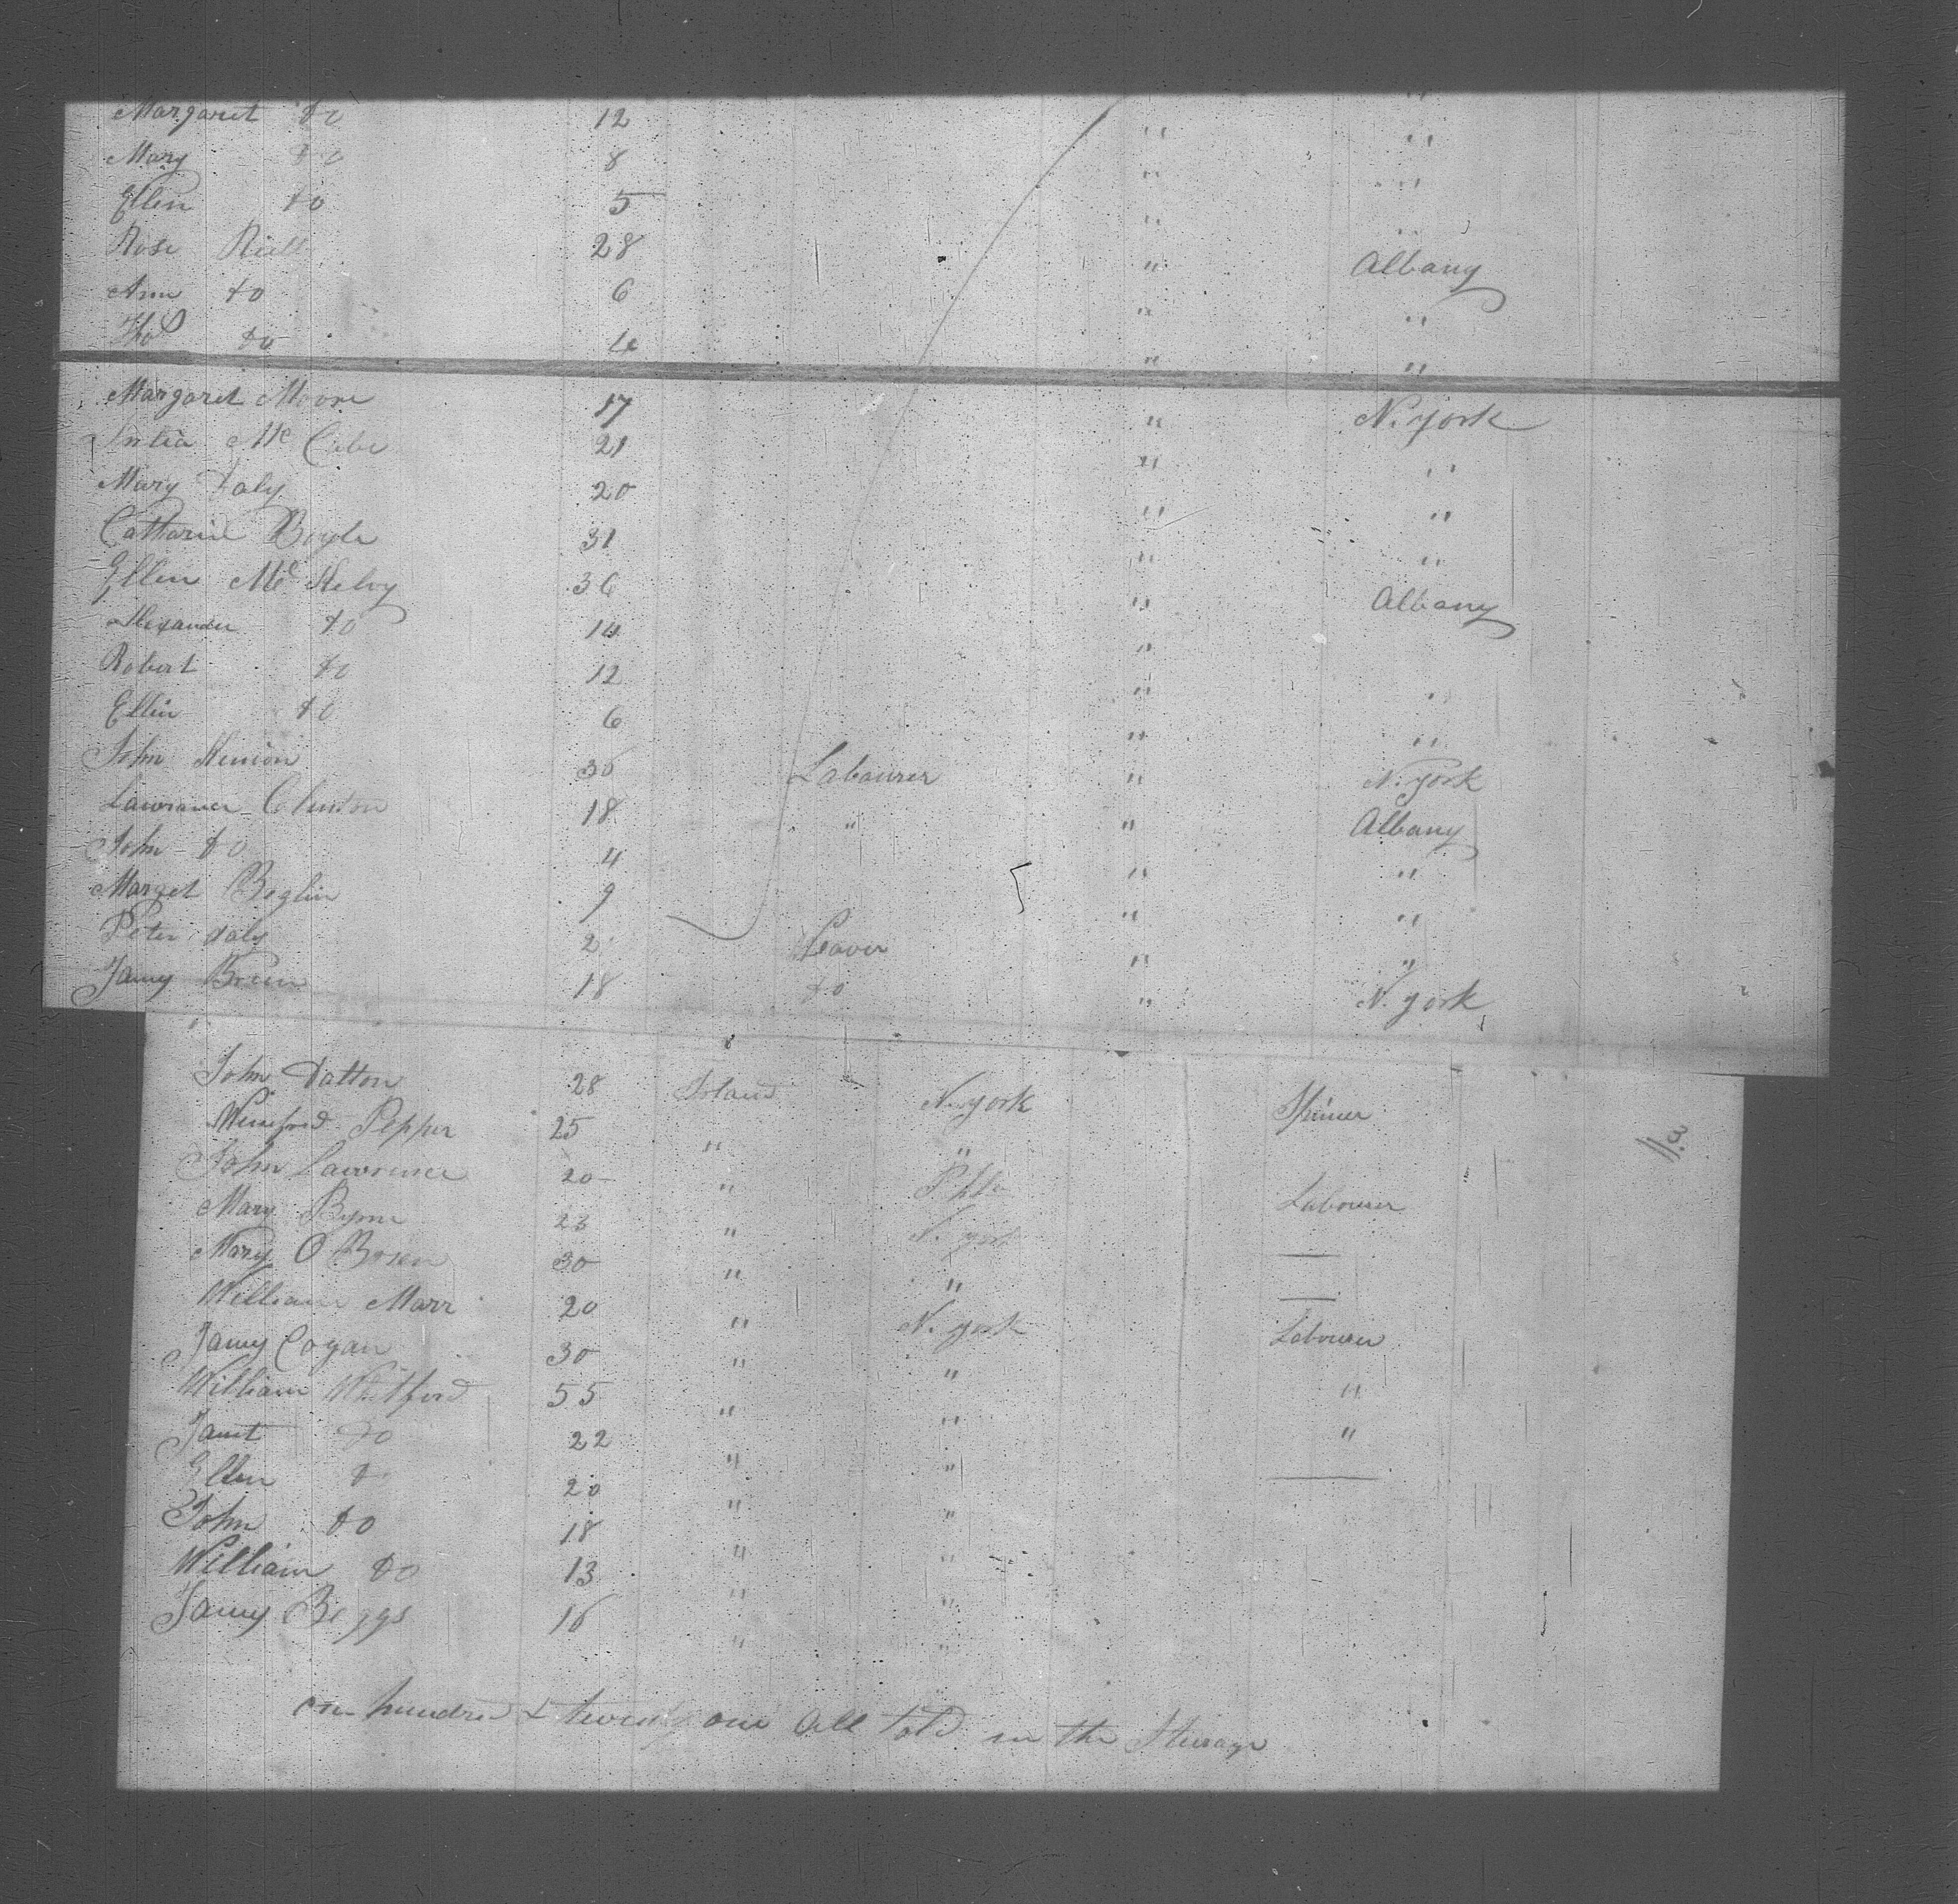 Margaret do 12 " "
Mary do 8 " "
Ellen do 5 " "
Rose Riell 28 " Albany
Ann do 6 " "
Tho do 4 " "
Margaret Moore 17 " N. york
Julia Mc Cabe 21 " "
Mary Daly 20 " "
Catharine Boyle 31 " "
Ellen Mc Kelvy 36 " Albany
Alexander do 14 "
Robert do 12 " "
Ellen do 6 " "
John 30 Labourer " N. york
Lawrance Clinton 18 " " Albany
John do 4 " "
Marget Beglin 9 " "
Peter daly 2 " "
James Breen 18 do " N. york
John Datton 28 Irland N. york Spinner
Winefred Pepper 25 " "
John Lawrence 20 " Phla Labourer
Mary Byrne 23 " N. york —
Mary O Brien 30 " " —
William Marr 20 " N. york Labourer
James Cogan 30 " " "
William Whitford 55 " " "
Janet do 22 " " —
Ellen do 20 " "
John do 18 " "
William do 13 " "
James Beggs 16 " "
one hundred & twenty one all told in the Sturage